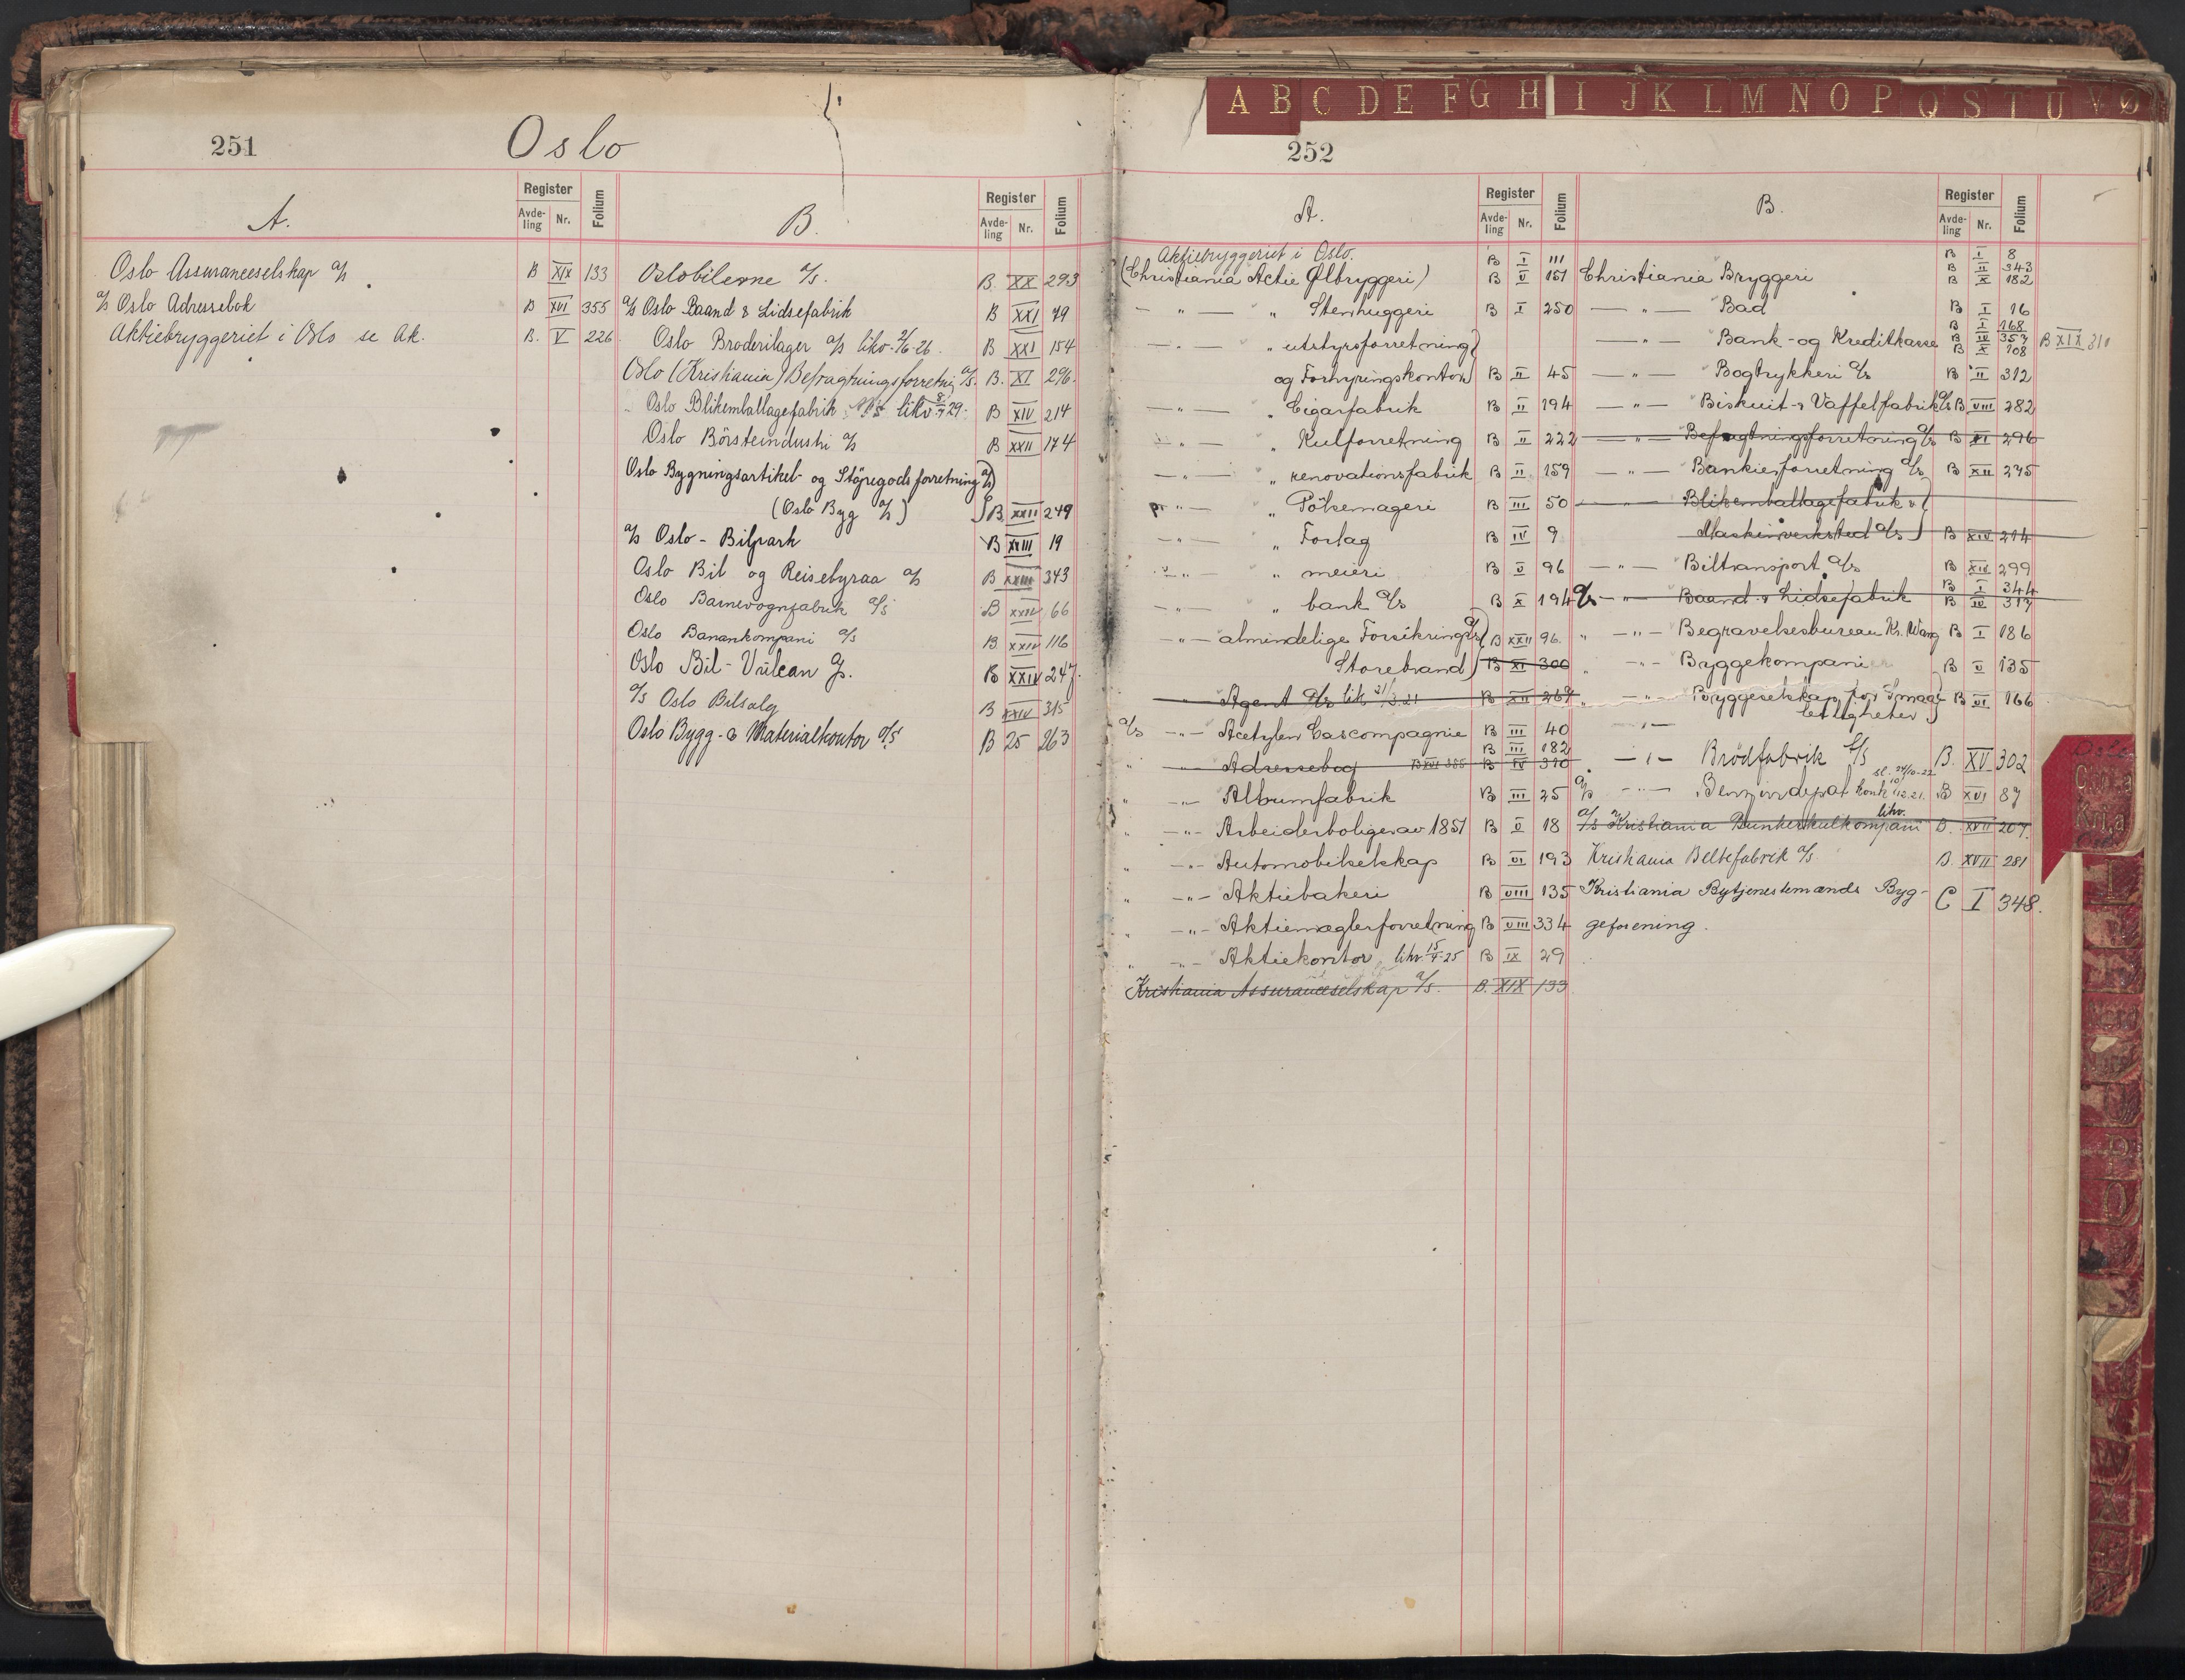 251
Oslo
A.
Register
Avde-
ling
Nr.
Folium
B.
Register
Avde-
ling
Nr.
Folium
Oslo Assuranceselskap a/s B XIX 133
a/s Oslo Adressebok B XVI 355
Aktiebryggeriet i Oslo se Ak. B. V 226
Oslobilerne a/s. B. XX 293
a/s Oslo Baand & Lidsefabrik B XXI 49
Oslo Broderilager a/s likv. 2/6-26. B XXI 154
Oslo (Kristiania) Befragtningsforretnig a/s. B. XI 296.
Oslo Blikemballagefabrik a/s likv 8/7 29. B XIV 214
Oslo Börsteindustri a/s B XXII 174
Oslo Bygningsartikel- og Støpegods forretning a/s)
(Oslo Byg a/s) B. XXII 249
a/s Oslo - Bilpark B XXIII 19
Oslo Bil og Reisebyraa a/s B XXIII 343
Oslo Barnevognfabrik a/s B XXIV 66
Oslo Banankompani a/s B. XXIV 116
Oslo Bil-Vulcan a/s. B XXIV 247.
a/s Oslo Bilsalg B XXIV 315
Oslo Bygg- & Materialkontor a/s B 25 263
A B C D E F G H I J K L M N O P Q S T U V Ø
252
A.
Register
Avde-
ling
Nr.
Folium
B.
Register
Avde-
ling
Nr.
Folium
Aktiebryggeriet i Oslo. B I 111
(Christiania Actie Ølbryggeri) B V 151
— " — " Stenhuggeri B I 250
— " — " utstyrsforretning
og Forhyringskontor B II 45
— " — " Cigarfabrik B II 194
" — " Kulforretning B II 222
— " — " renovationsfabrik B II 159
" — " Pölsemageri B III 50
— " — " Forlag B IV 9
— " — " meieri B V 96
— " — " bank a/s B X 194
— " — almindelige Forsikrings a/s B XXII 96.
Storebrand) B XI 300
" Agent a/s lik 21/3.21 B XII 267
a/s — " — Acetylen Gascompagnie B III 40
B III 182
" — Adressebog B XVI 355 B IV 310
" — " — Albumfabrik B III 25
" — " — Arbeiderboliger av 1851 B V 18
" — " — Automobilselskap B VI 193
" — " — Aktiebakeri B VIII 135
" — " — Aktiemæglerforretning B VIII 334
" — " — Aktiekontor likv. 15/4-25 B IX 29
Kristiania Assuranceselskap a/s. B. XIX 133
B I 8
B II 343
Christiania Bryggeri B X 182
— " — Bad B I 16
B I 168
— " — Bank-og Kreditkasse B IV 357 B XIX 210
B X 108
— " — Bogtrykkeri a/s B II 312
— " — Biskuit- & Vaffelfabrik a/s B VIII 282
— " — Befragtningsforretning a/s B XI 296
— " — Bankierforretning a/s B XII 275
— " — Blikemballagefabrik &
Maskinverksted a/s) B XIV 214
— " — Biltransport a/s B XIV 299
B I 344
a/s — " — Baand & Lidsefabrik B IV 317
" — " — Begravelsesbureau Kr. Wang B I 186
" — " — Byggekompani B V 135
" — " — Byggeselskap for Smaa- B VI 166
leiligheter
— " — Brödfabrik a/s B. XV 302
sl. 24/10-22
a/s — " — Benzindepot konk 10/12.21. B XVI 87
likv.
a/s Kristiania Bunkerskulkompani B. XVII 207.
Kristiania Beltefabrik a/s. B. XVII 281
Kristiania Bytjenestemænds Byg- C I 348.
geforening.
Oslo
Chr.a
Kr.a